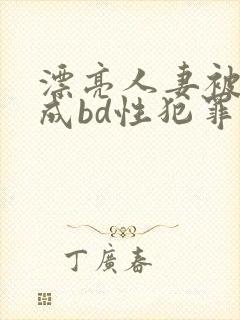 漂亮人妻被
成bd性犯罪
丁廣春